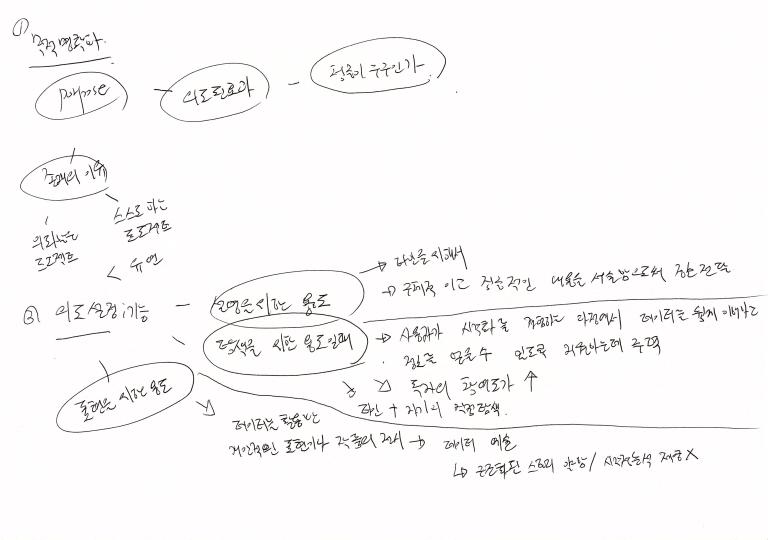 ①
목적 명확화.
purpose - 의도된 효과 - 청중이 누구인가
존재의 이유
의뢰받은 프로젝트
스스로 하는 프로젝트
< 유연
② 의도 설정; 기능 - 설명을 위한 용도
→ 타인을 위해서
→ 구체적 이고 정보적인 내용을 서술함으로써 정보전달
탐색을 위한 용도일때
→ 사용자가 시각화를 경험하는 과정에서 데이터를 쉽게 이해하고
정보를 얻을 수 있도록 해야하는데 주력
↘ 독자의 참여도가 ↑
타인 + 자기의 직접탐색.
표현을 위한 용도
데이터를 활용한
개인적인 표현이나 작품의 전시 → 데이터 예술
↳ 구조화된 스토리 / 시각적분석 제공 X